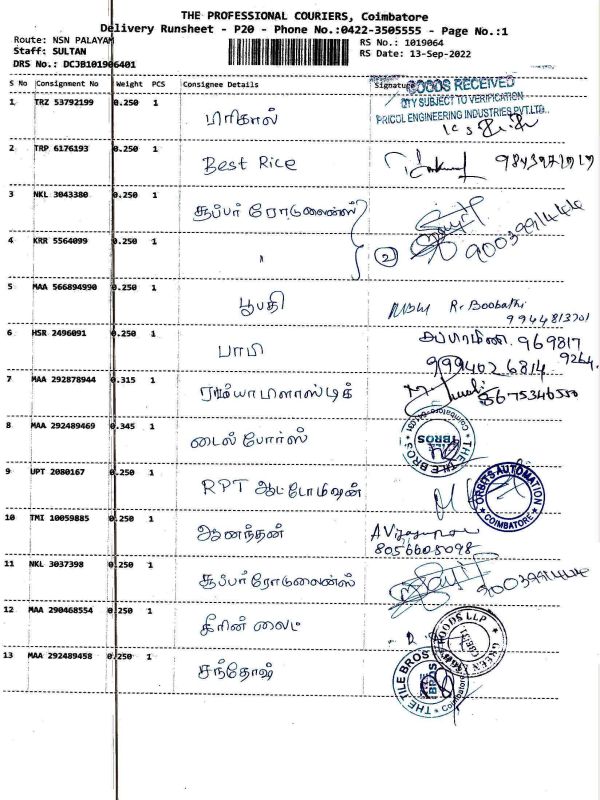 THE PROFESSIONAL COURIERS, Coimbatore
Delivery Runsheet - P20 - Phone No.:0422-3505555 - Page No.:1
Route: NSN PALAYAM
RS No.: 1019064
Staff: SULTAN
RS Date: 13-Sep-2022
DRS No.: DCJB101906401
S No Consignment No Weight PCS Consignee Details Signature
GOODS RECEIVED
QTY SUBJECT TO VERIFICATION
PRICOL ENGINEERING INDUSTRIES PVT.LTD.,
1 TRZ 53792199 0.250 1
2 TRP 6176193 0.250 1 Best Rice
3 NKL 3043380 0.250 1 சூப்பர் ரோடுலைன்ஸ்
9003991444
4 KRR 5564099 0.250 1 " 2
5 MAA 566894990 0.250 1 பூபதி R. Boobathi
9944813701
6 HSR 2496091 0.250 1 பாபி 969817
9264
9994026814
7 MAA 292878944 0.315 1 ரம்யா பிளாஸ்டிக் 8675346550
8 MAA 292489469 0.345 1 டைல் போர்ஸ் THE TILE BROS Coimbatore
9 UPT 2080167 0.250 1 RPT ஆட்டோமேஷன் ORBITS AUTOMATION COIMBATORE
10 TMI 10059885 0.250 1 ஆனந்தன்
8056605098
11 NKL 3037398 0.250 1 சூப்பர் ரோடுலைன்ஸ் 9003991444
12 MAA 290468554 0.250 1 கிரின் லைட் FOODS LLP
13 MAA 292489458 0.250 1 சந்தோஷ் THE TILE BROS Coimbatore